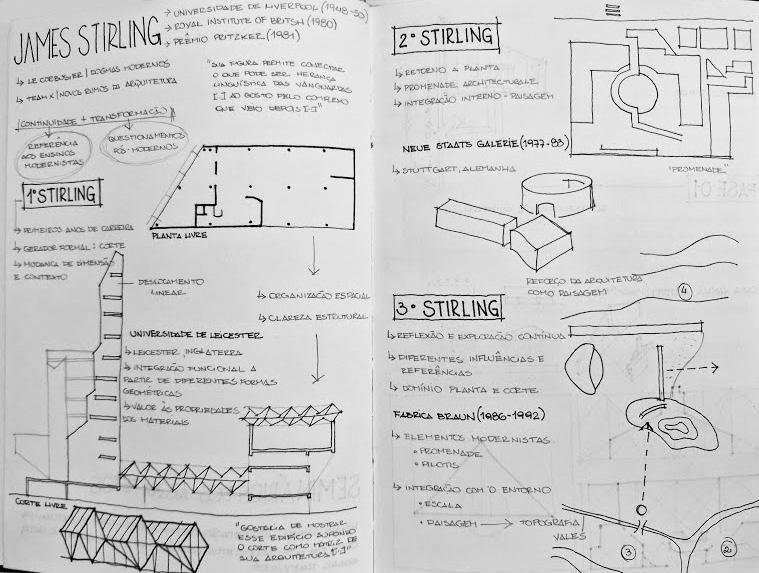 JAMES STIRLING
↳ UNIVERSIDADE DE LIVERPOOL (1948-50)
↳ ROYAL INSTITUTE OF BRITSH (1980)
↳ PRÊMIO PRITZKER (1981)
↳ LE CORBUSIER / DOGMAS MODERNOS
↳ TEAM X / NOVOS RUMOS DA ARQUITETURA
"SUA FIGURA PERMITE CONECTAR
O QUE PODE SER HERANÇA
LINGUÍSTICA DAS VANGUARDAS
[...] AO GOSTO PELO COMPLEXO
QUE VEIO DEPOIS [...]"
CONTINUIDADE + TRANSFORMAÇÃO
REFERÊNCIA
AOS ENSINOS
MODERNISTAS
QUESTIONAMENTOS
PÓS-MODERNOS
1º STIRLING
↳ PRIMEIROS ANOS DE CARREIRA
↳ GERADOR FORMAL: CORTE
↳ MUDANÇA DE DIMENSÃO
E CONTEXTO
PLANTA LIVRE
DESLOCAMENTO
LINEAR
↳ ORGANIZAÇÃO ESPACIAL
↳ CLAREZA ESTRUTURAL
UNIVERSIDADE DE LEICESTER
↳ LEICESTER, INGLATERRA
↳ INTEGRAÇÃO FUNCIONAL A
PARTIR DE DIFERENTES FORMAS
GEOMÉTRICAS
↳ VALOR ÀS PROPRIEDADES
DOS MATERIAIS
CORTE LIVRE
"GOSTARIA DE MOSTRAR
ESSE EDIFÍCIO
O CORTE COMO MATRIZ DE
SUA ARQUITETURA [...]"
2º STIRLING
↳ RETORNO A PLANTA
↳ PROMENADE ARCHITECTURALE
↳ INTEGRAÇÃO INTERNO - PAISAGEM
NEUE STAATS GALERIE (1977-83)
↳ STUTTGART, ALEMANHA
"PROMENADE"
REFORÇO DA ARQUITETURA
COMO PAISAGEM
3º STIRLING
↳ REFLEXÃO E EXPLORAÇÃO CONTÍNUA
↳ DIFERENTES INFLUÊNCIAS E
REFERÊNCIAS
↳ DOMÍNIO PLANTA E CORTE
FABRICA BRAUN (1986-1992)
↳ ELEMENTOS MODERNISTAS
• PROMENADE
• PILOTIS
↳ INTEGRAÇÃO COM O ENTORNO
• ESCALA
• PAISAGEM → TOPOGRAFIA
VALES
4
3
2